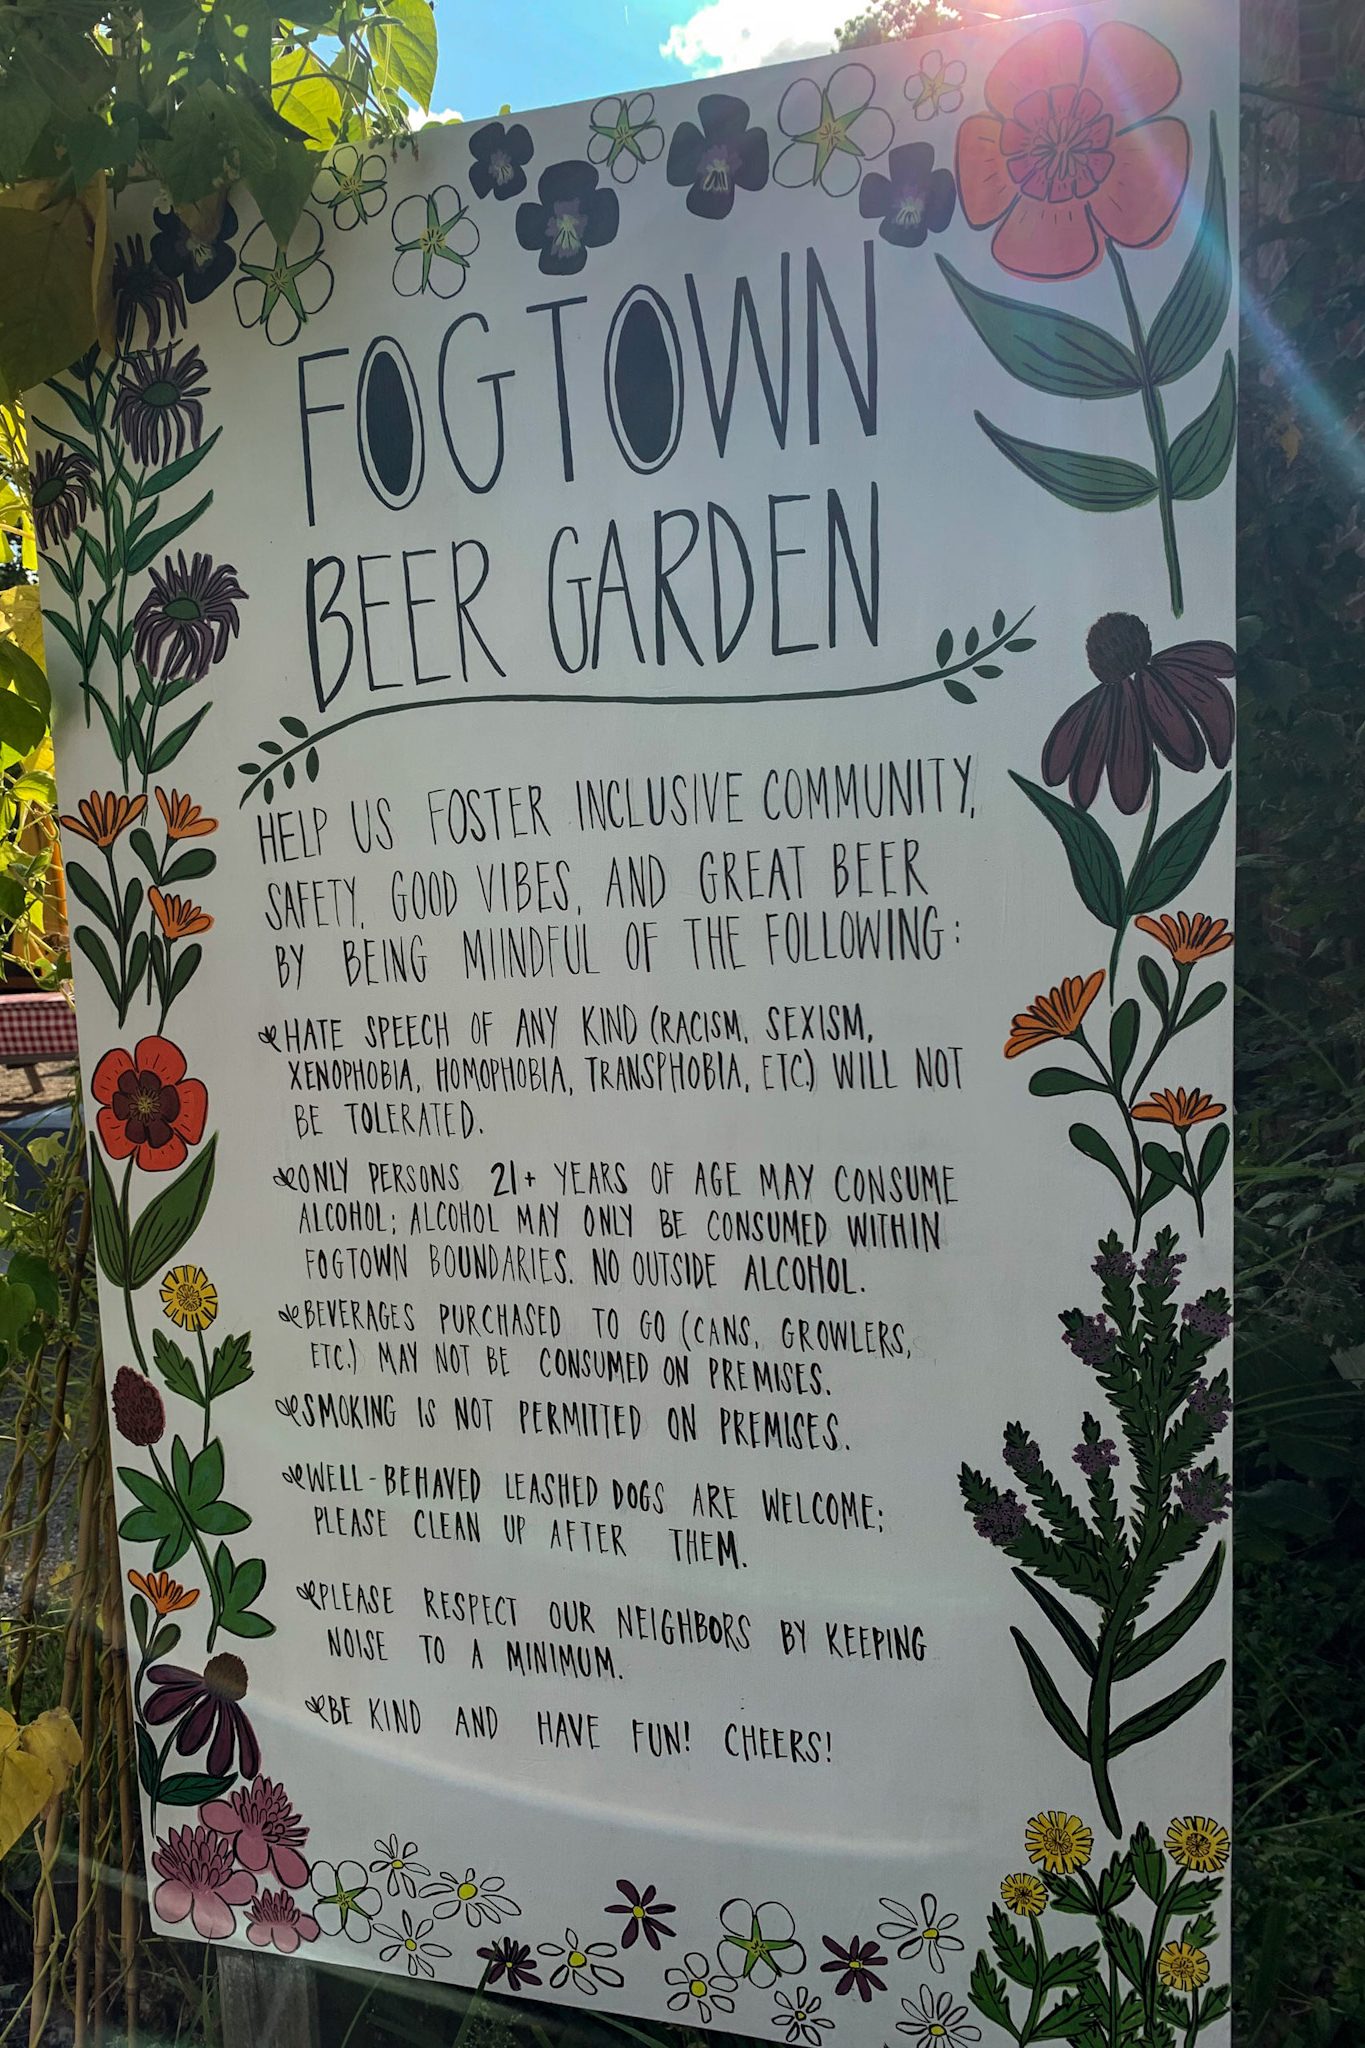 FOGTOWN
BEER GARDEN
HELP US FOSTER INCLUSIVE COMMUNITY,
SAFETY, GOOD VIBES, AND GREAT BEER
BY BEING MIINDFUL OF THE FOLLOWING:
HATE SPEECH OF ANY KIND (RACISM, SEXISM,
XENOPHOBIA, HOMOPHOBIA, TRANSPHOBIA, ETC.) WILL NOT
BE TOLERATED.
ONLY PERSONS 21+ YEARS OF AGE MAY CONSUME
ALCOHOL; ALCOHOL MAY ONLY BE CONSUMED WITHIN
FOGTOWN BOUNDARIES. NO OUTSIDE ALCOHOL.
BEVERAGES PURCHASED TO GO (CANS, GROWLERS,
ETC.) MAY NOT BE CONSUMED ON PREMISES.
SMOKING IS NOT PERMITTED ON PREMISES.
WELL-BEHAVED LEASHED DOGS ARE WELCOME;
PLEASE CLEAN UP AFTER THEM.
PLEASE RESPECT OUR NEIGHBORS BY KEEPING
NOISE TO A MINIMUM.
BE KIND AND HAVE FUN! CHEERS!